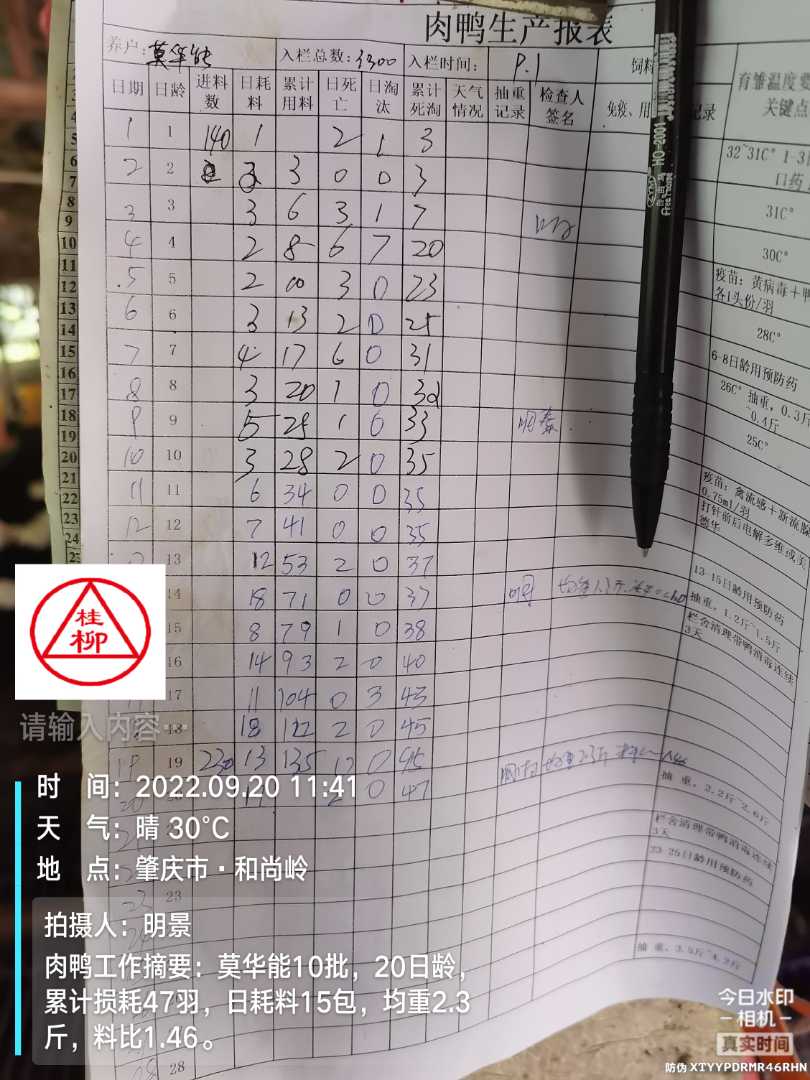 肉鸭生产报表
养户: 莫华能 入栏总数: 3300 入栏时间: P.1 饲料
日期 日龄 进料数 日耗料 累计用料 日死亡 日淘汰 累计死淘 天气情况 抽重记录 检查人签名 免疫、用 记录
育雏温度要
关键点
1 1 140 1 2 1 3
32~31C° 1-3
口药
2 2 3 3 0 0 3
3 3 3 6 3 1 7
31C°
4 4 2 8 6 7 20
30C°
5 5 2 10 3 0 23
疫苗：黄病毒＋鸭
各1头份/羽
6 6 3 13 2 0 25
28C°
7 7 4 17 6 0 31
6-8日龄用预防药
8 8 3 20 1 0 32
26C° 抽重，0.3斤
~0.4斤
9 9 5 25 1 0 33
25C°
10 10 3 28 2 0 35
11 11 6 34 0 0 35
疫苗：禽流感＋新流腺
0.75ml/羽
12 12 7 41 0 0 35
打针前后电解多维或美
德华
13 12 53 2 0 37
14 18 71 0 0 37
13-15日龄用预防药
抽重，1.2斤~1.5斤
15 8 79 1 0 38
栏舍清理带鸭消毒连续
3天
16 14 93 2 0 40
17 11 104 0 3 43
18 18 122 2 0 45
19 19 230 13 135 12 0 45
抽重，2.2斤~2.6斤
20 2 0 47
栏舍清理带鸭消毒连续
3天
23-25日龄用预防药
23 23
抽重，3.5斤~4.2斤
28
桂
柳
请输入内容···
时 间：2022.09.20 11:41
天 气：晴 30℃
地 点：肇庆市·和尚岭
拍摄人：明景
肉鸭工作摘要：莫华能10批，20日龄，
累计损耗47羽，日耗料15包，均重2.3
斤，料比1.46。
今日水印
－相机－
真实时间
防伪 XTYYPDRMR46RHN